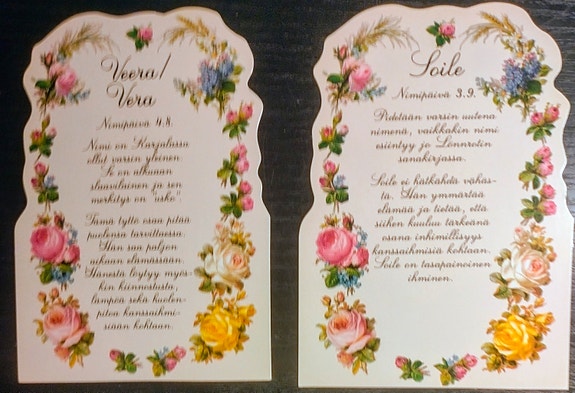 Veera/
Vera
Nimipäivä 4.8.
Nimi on Karjalassa
ollut varsin yleinen.
Se on alkuaan
slaavilainen ja sen
merkitys on "usko".
Tämä tyttö osaa pitää
puolensa tarvittaessa.
Hän saa paljon
aikaan elämässään.
Hänestä löytyy myös-
kin kiinnostusta,
lämpöä sekä huolen-
pitoa kanssaihmi-
siään kohtaan.
Soile
Nimipäivä 3.9.
Pidetään varsin uutena
nimenä, vaikkakin nimi
esiintyy jo Lönnrotin
sanakirjassa.
Soile ei hätkähdä vähäs-
tä. Hän ymmärtää
elämää ja tietää, että
siihen kuuluu tärkeänä
osana inhimillisyys
kanssaihmisiä kohtaan.
Soile on tasapainoinen
ihminen.